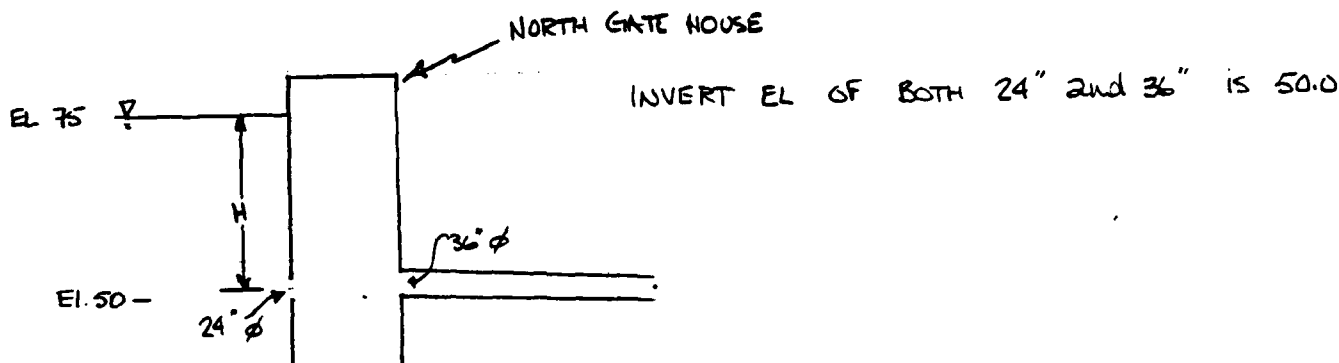 NORTH GATE HOUSE
INVERT EL OF BOTH 24" and 36" is 50.0
EL 75
H
36" ϕ
El. 50 -
24" ϕ